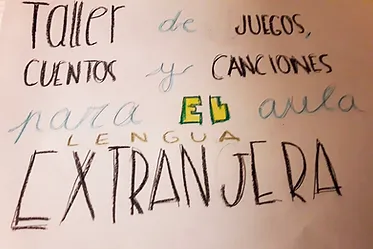 Taller de JUEGOS,
CUENTOS y CANCIONES
para EL aula
LENGUA
EXTRANJERA